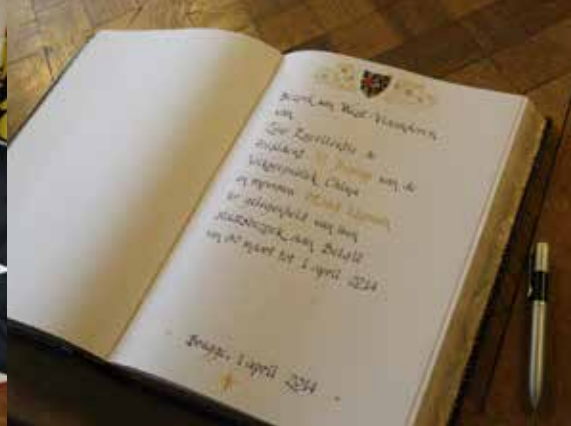 Bezoek aan West-Vlaanderen
van
Zijne Excellentie de
president Xi Jinping van de
Volksrepubliek China
en mevrouw PENG Liyuan
ter gelegenheid van hun
staatsbezoek aan België
van 30 maart tot 1 april 2014
Brugge, 1 april 2014